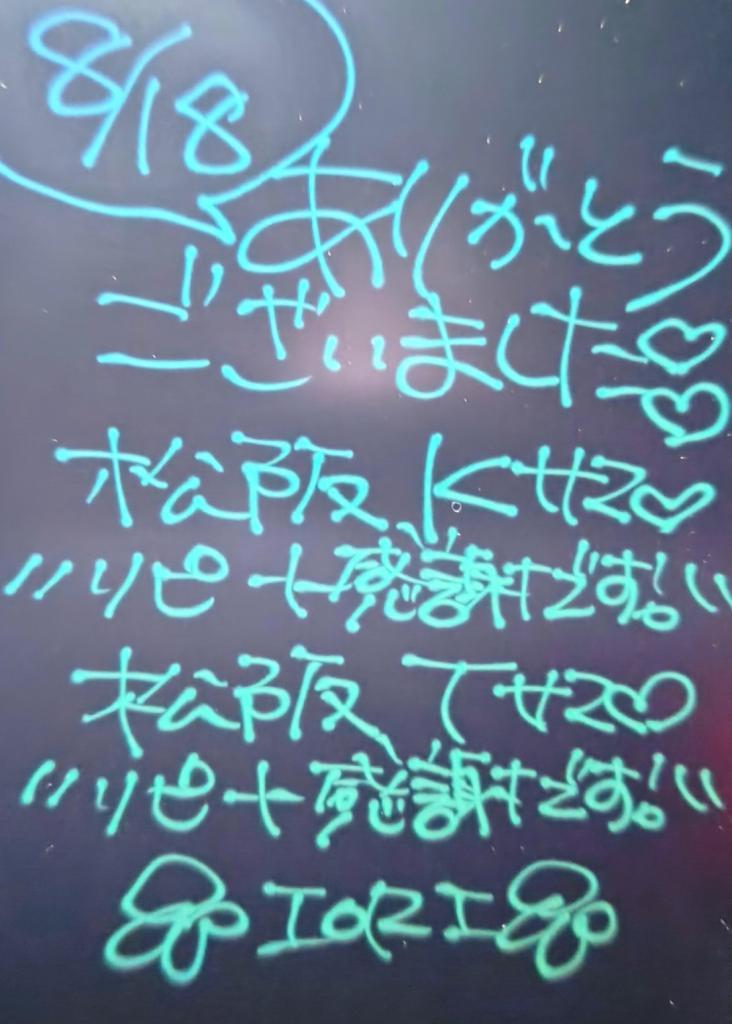 8/18
ありがとう
ございました♡♡
松阪 Kサマ♡
リピート感謝です!!
松阪 Tサマ♡
リピート感謝です!!
IORI